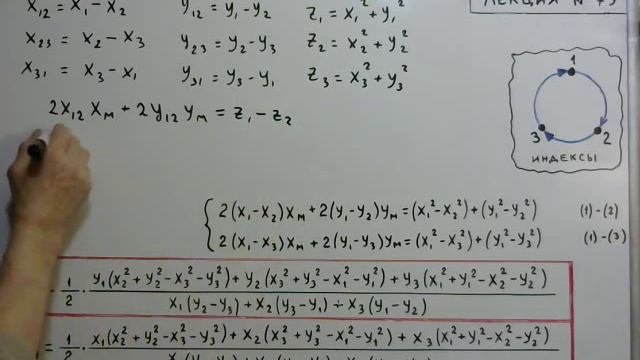 x₁₂ = x₁ - x₂  y₁₂ = y₁ - y₂  z₁ = x₁² + y₁²
x₂₃ = x₂ - x₃  y₂₃ = y₂ - y₃  z₂ = x₂² + y₂²
x₃₁ = x₃ - x₁  y₃₁ = y₃ - y₁  z₃ = x₃² + y₃²
2x₁₂ xₘ + 2y₁₂ yₘ = z₁ - z₂
1
3 2
ИНДЕКСЫ
2(x₁-x₂)xₘ + 2(y₁-y₂)yₘ = (x₁²-x₂²)+(y₁²-y₂²)  (1)-(2)
2(x₁-x₃)xₘ + 2(y₁-y₃)yₘ = (x₁²-x₃²)+(y₁²-y₃²)  (1)-(3)
1/2 · y₁(x₂²+y₂²-x₃²-y₃²)+y₂(x₃²+y₃²-x₁²-y₁²)+y₃(x₁²+y₁²-x₂²-y₂²)
x₁(y₂-y₃)+x₂(y₃-y₁)+x₃(y₁-y₂)
= 1/2 · x₁(x₂²+y₂²-x₃²-y₃²)+x₂(x₃²+y₃²-x₁²-y₁²)+x₃(x₁²+y₁²-x₂²-y₂²)